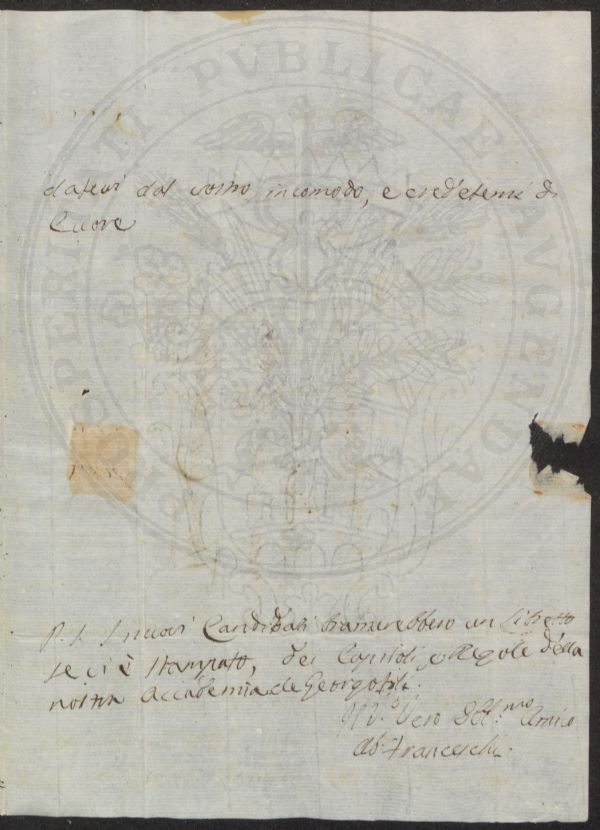 PROSPERITATI PUBLICAE AUGENDAE
dal vostro incomodo, e credetemi di
Cuore
P.S. I nuovi Candidati bramerebbero un Libretto
se ci è stampato, dei Capitoli, e Regole della
nostra Accademia de Georgofili.
Vero Amico
Franceschi